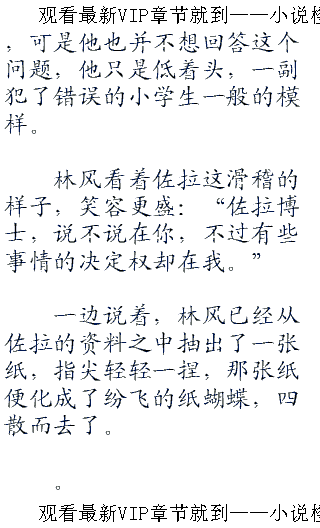 观看最新VIP章节就到——小说
，可是他也并不想回答这个
问题，他只是低着头，一副
犯了错误的小学生一般的模
样。
林风看着佐拉这滑稽的
样子，笑容更盛：“佐拉博
士，说不说在你，不过有些
事情的决定权却在我。”
一边说着，林风已经从
佐拉的资料之中抽出了一张
纸，指尖轻轻一捏，那张纸
便化成了纷飞的纸蝴蝶，四
散而去了。
。
观看最新VIP章节就到——小说